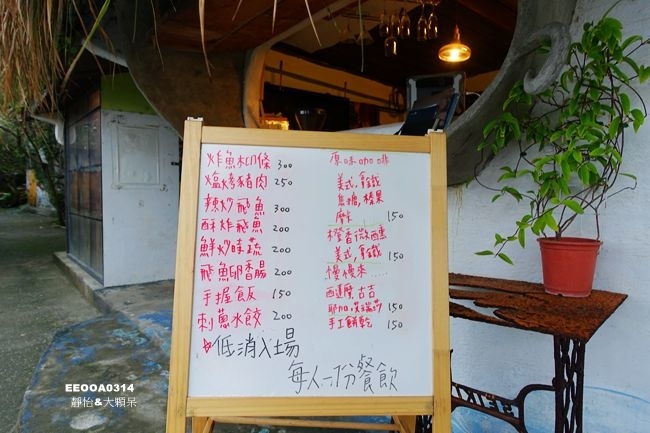 炸魚柳條 300
塩烤豬肉 250
辣炒飛魚 300
酥炸飛魚 200
鮮炒時蔬 200
飛魚卵香腸 200
手握飯 150
刺蔥水餃 200
低消入場
每人一份餐飲
原味咖啡
美式,拿鐵
焦糖,榛果
摩卡 150
橙香微醺
美式,拿鐵 150
慢慢來.....
西達摩,古吉
耶加 150
手工餅乾 150
EEOOA0314
靜怡&大顆呆